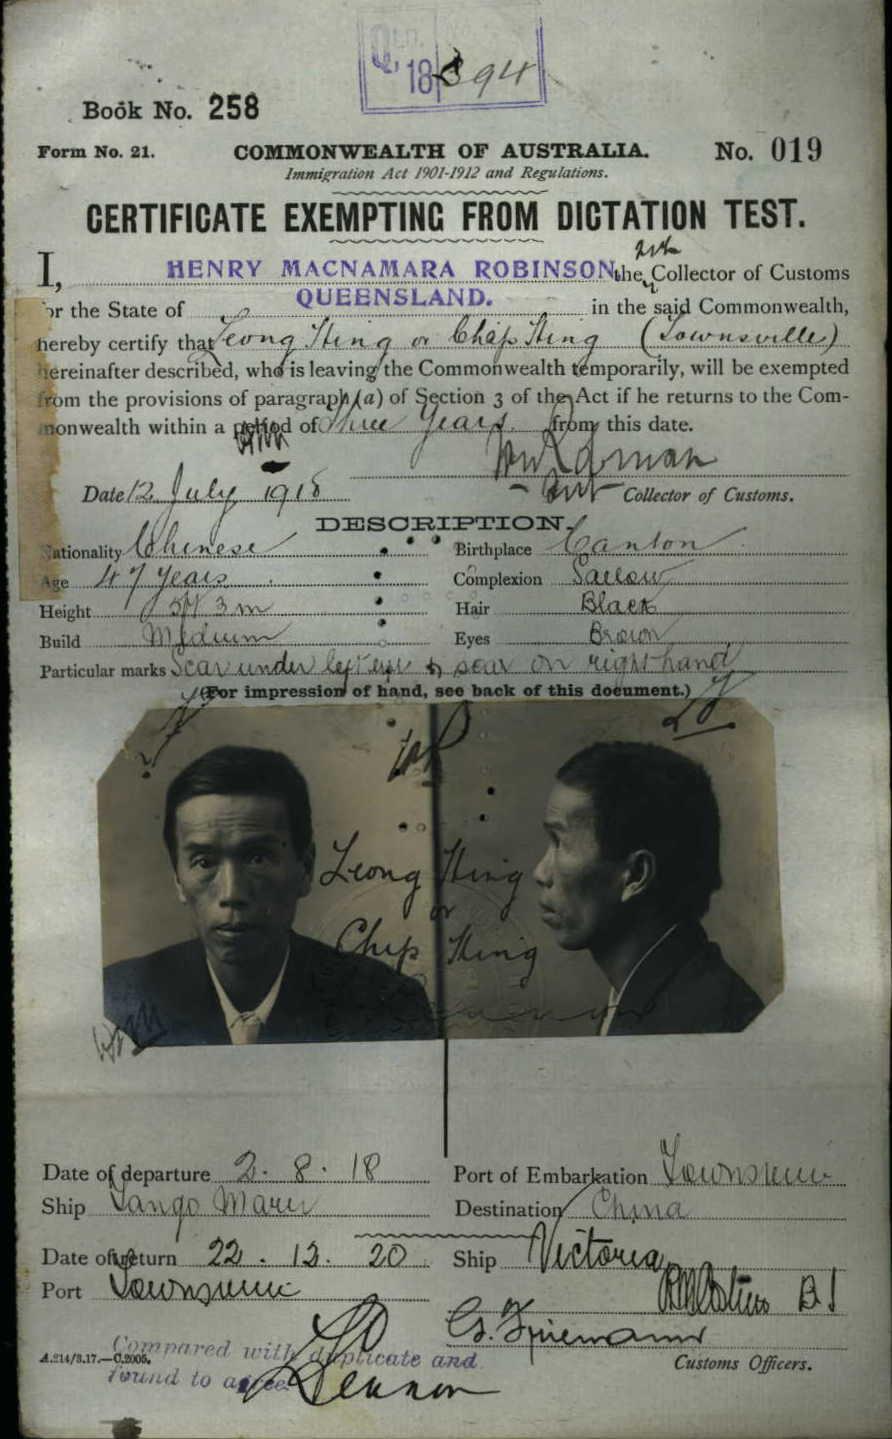 18/394
Book No. 258
Form No. 21. COMMONWEALTH OF AUSTRALIA. No. 019
Immigration Act 1901-1912 and Regulations.
CERTIFICATE EXEMPTING FROM DICTATION TEST.
I, HENRY MACNAMARA ROBINSON, the Collector of Customs
for the State of QUEENSLAND. in the said Commonwealth,
hereby certify that Leong Hing or Chip Hing (Townsville)
hereinafter described, who is leaving the Commonwealth temporarily, will be exempted
from the provisions of paragraph (a) of Section 3 of the Act if he returns to the Com-
monwealth within a period of Three Years from this date.
Date 12 July 1918 Collector of Customs.
DESCRIPTION.
Nationality Chinese Birthplace Canton
Age 47 years Complexion Sallow
Height 5ft 3in Hair Black
Build Medium Eyes Brown
Particular marks Scar under left eye & scar on right hand
(For impression of hand, see back of this document.)
Leong Hing
or
Chip Hing
Date of departure 2. 8. 18 Port of Embarkation Townsville
Ship Tango Maru Destination China
Date of return 22. 12. 20 Ship Victoria
Port Townsville
Customs Officers.
A.214/3.17.—C.2005. Compared with duplicate and
found to agree.